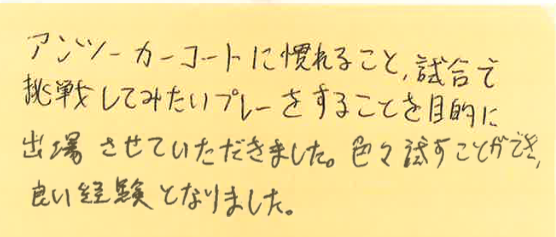 アンツーカーコートに慣れること,試合で
挑戦してみたいプレーをすることを目的に
出場させていただきました。色々試すことができ,
良い経験となりました。